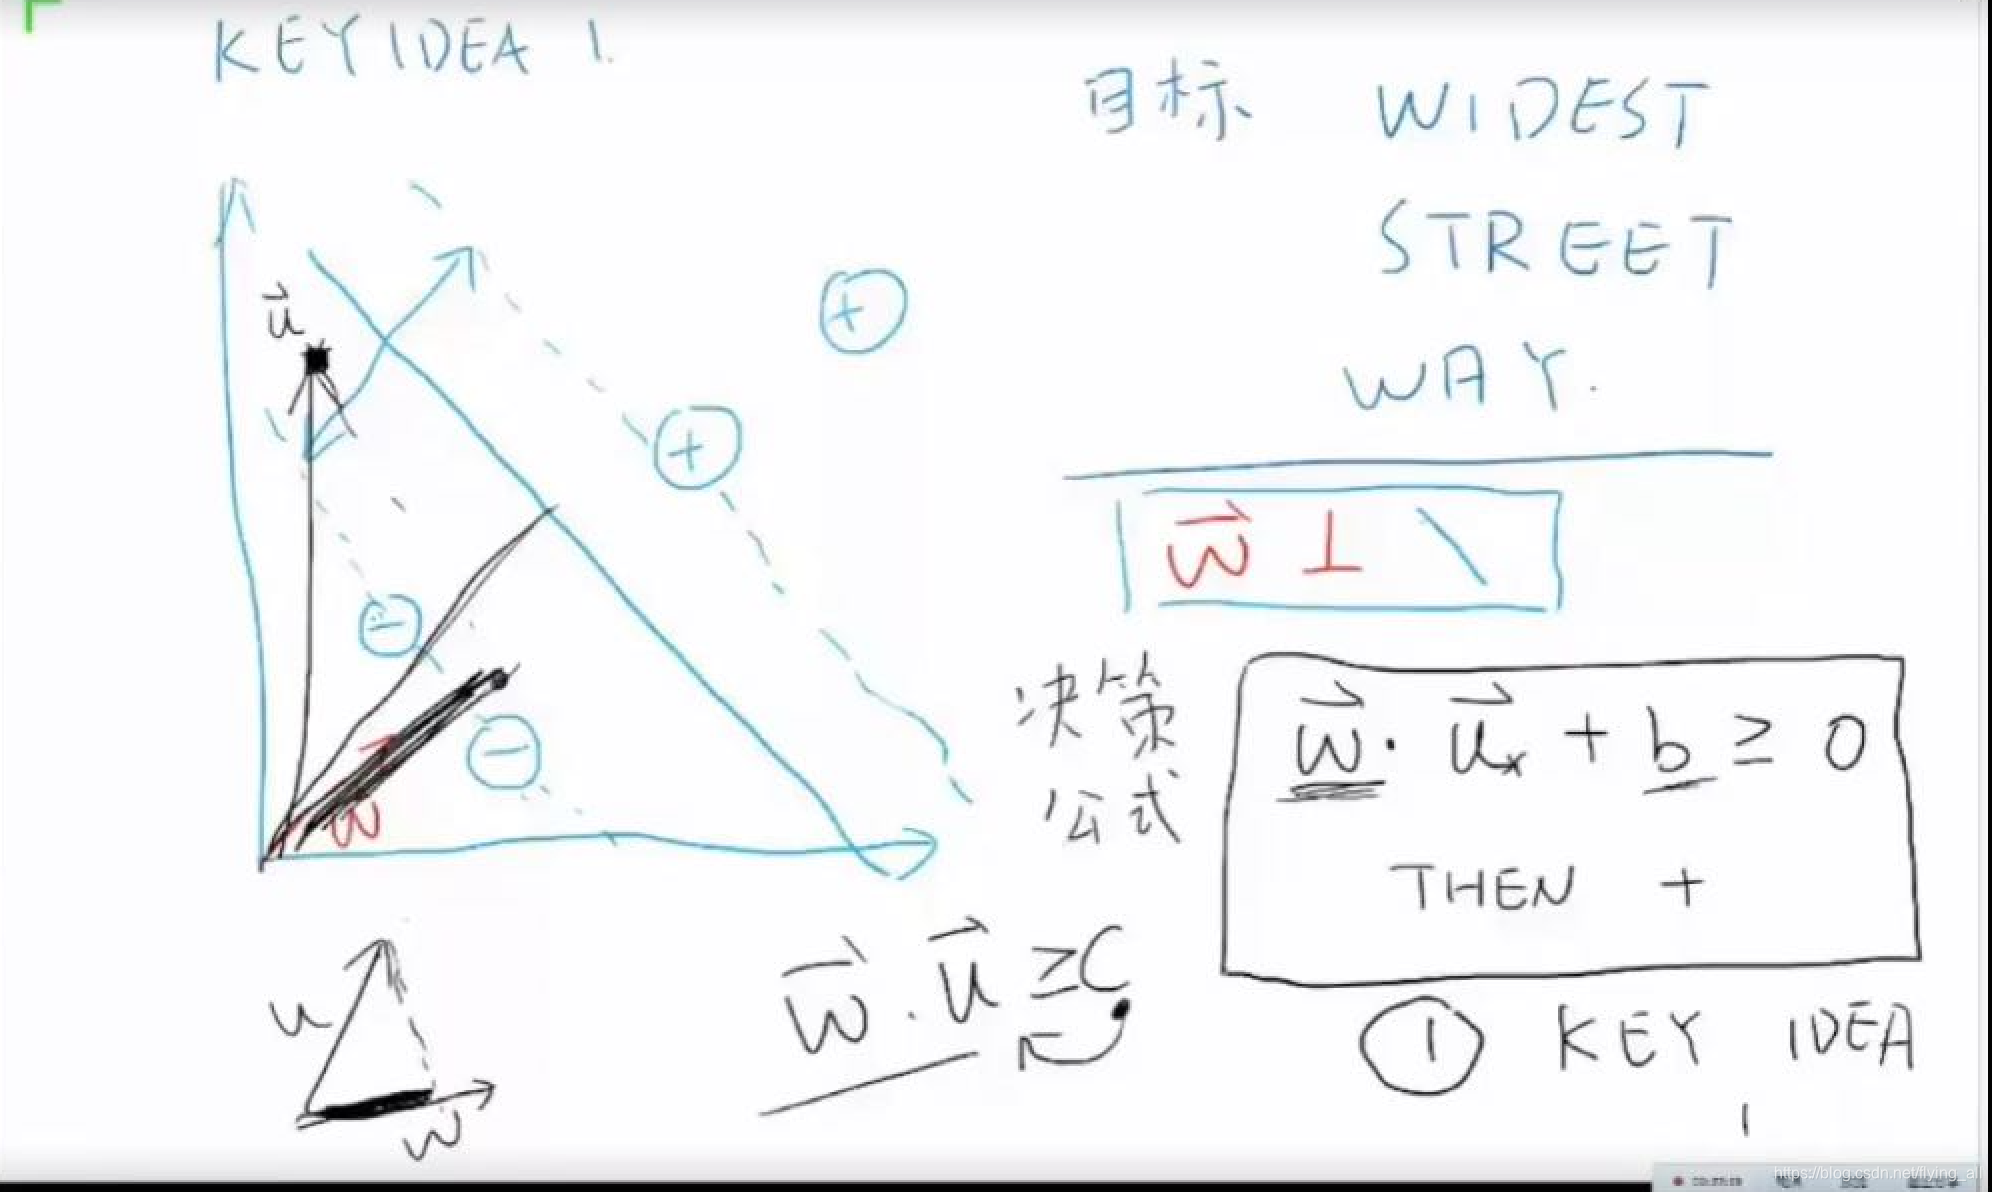 KEY IDEA 1.
目标 WIDEST
STREET
WAY.
u⃗
+
+
w⃗ ⊥ \
−
−
w
决策
公式
w⃗ · u⃗x + b ≥ 0
THEN +
w⃗ · u⃗ ≥ C
① KEY IDEA
1
u
w
https://blog.csdn.net/flying_a